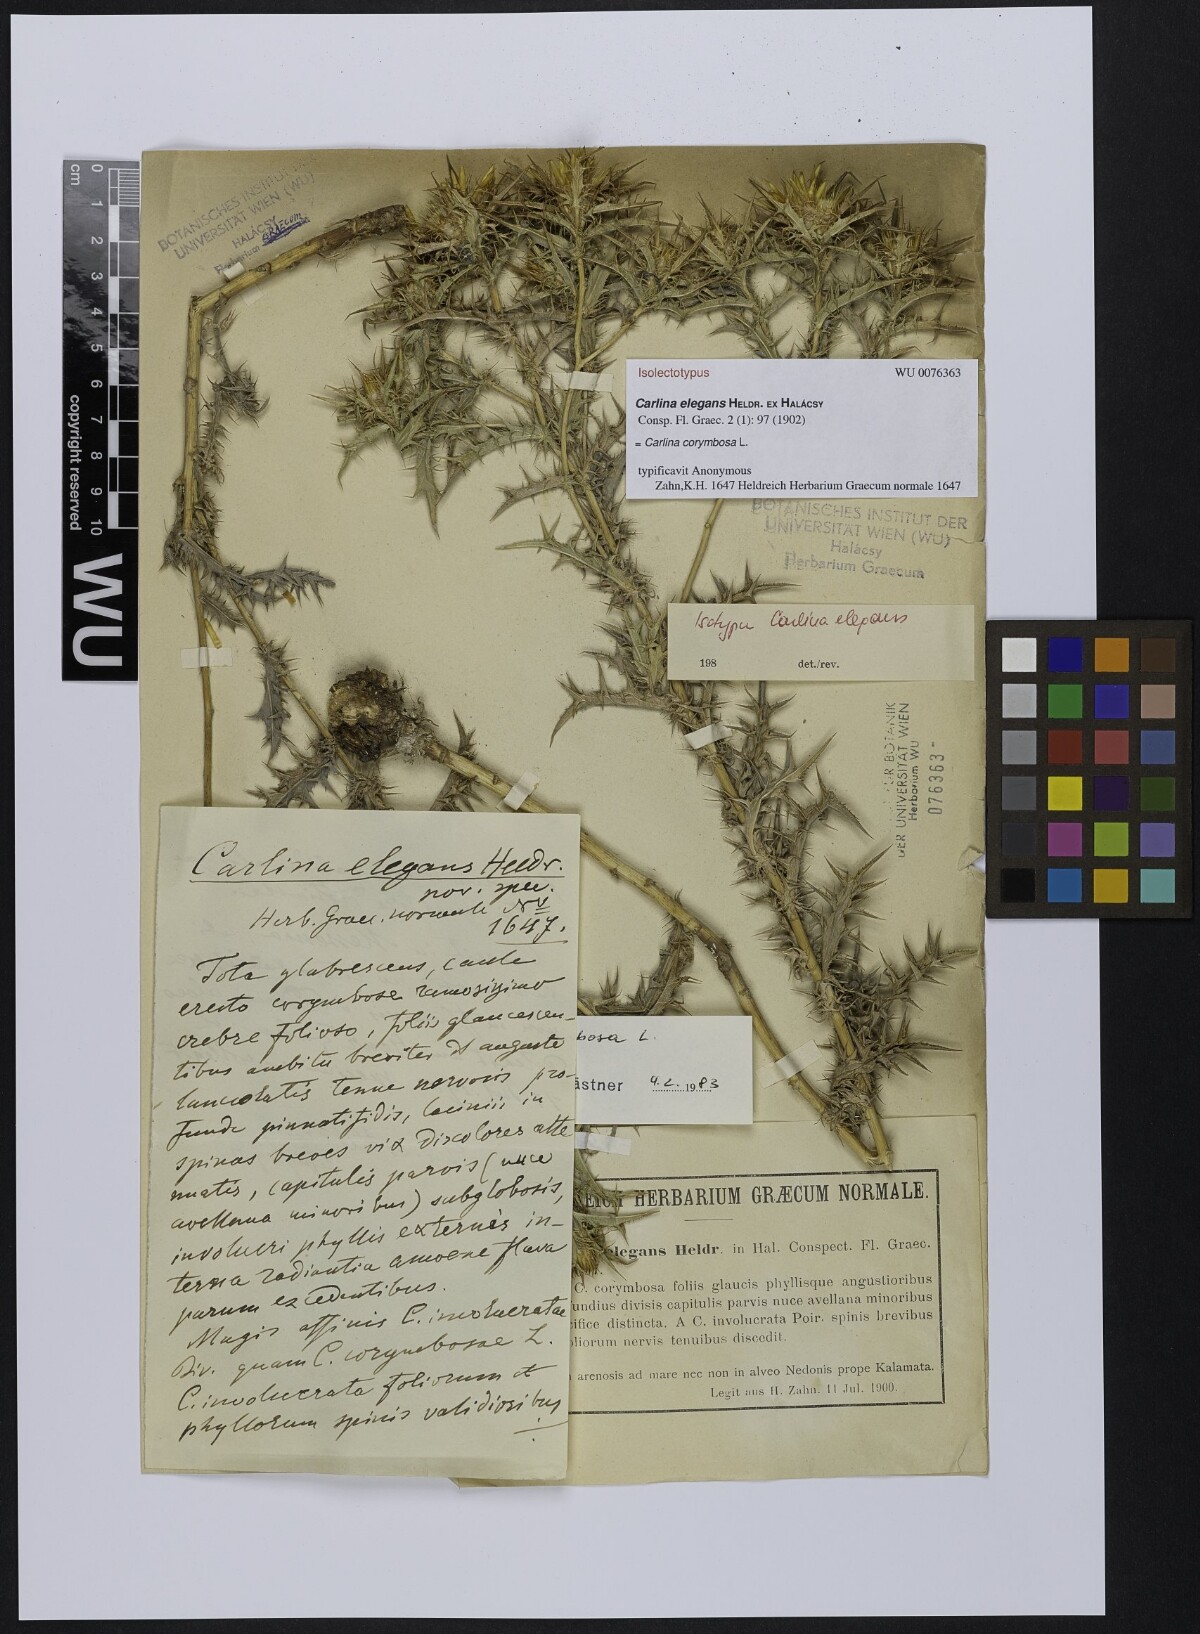 BOTANISCHES INSTITUT
UNIVERSITÄT WIEN (WU)
HALÁCSY
Herbarium GRAECUM
cm 0 1 2 3 4 5 6 7 8 9 10
copyright reserved
WU
Isolectotypus WU 0076363
Carlina elegans HELDR. EX HALÁCSY
Consp. Fl. Graec. 2 (1): 97 (1902)
= Carlina corymbosa L.
typificavit Anonymous
Zahn,K.H. 1647 Heldreich Herbarium Graecum normale 1647
BOTANISCHES INSTITUT DER
UNIVERSITÄT WIEN (WU)
Halácsy
Herbarium Graecum
Isotypu Carlina elegans
198 det./rev.
DER BOTANIK
DER UNIVERSITÄT WIEN
Herbarium WU
076363-
Carlina elegans Heldr.
nov. spec.
Herb. Graec. normale No
1647.
Tota glabrescens, caule
erecto corymbose ramosissimo
crebre folioso, foliis glaucescen-
tibus ambitu breviter et anguste
lanceolatis tenue nervosis pro-
funde pinnatifidis, laciniis in
spinas breves vix discolores atte
nuatis, capitulis parvis (nuce
avellana minoribus) subglobosis,
involucri phyllis externis in-
terna radiantia amoene flava
parum excedentibus.
Magis affinis C. involucratae
quam C. corymbosae L.
C. involucrata foliorum et
phyllorum spinis validioribus
bosa L.
ästner 4.2. 1983
REICH HERBARIUM GRÆCUM NORMALE.
elegans Heldr. in Hal. Conspect. Fl. Graec.
C. corymbosa foliis glaucis phyllisque angustioribus
undius divisis capitulis parvis nuce avellana minoribus
cifice distincta. A C. involucrata Poir. spinis brevibus
oliorum nervis tenuibus discedit.
arenosis ad mare nec non in alveo Nedonis prope Kalamata.
Legit aus H. Zahn. 11 Jul. 1900.